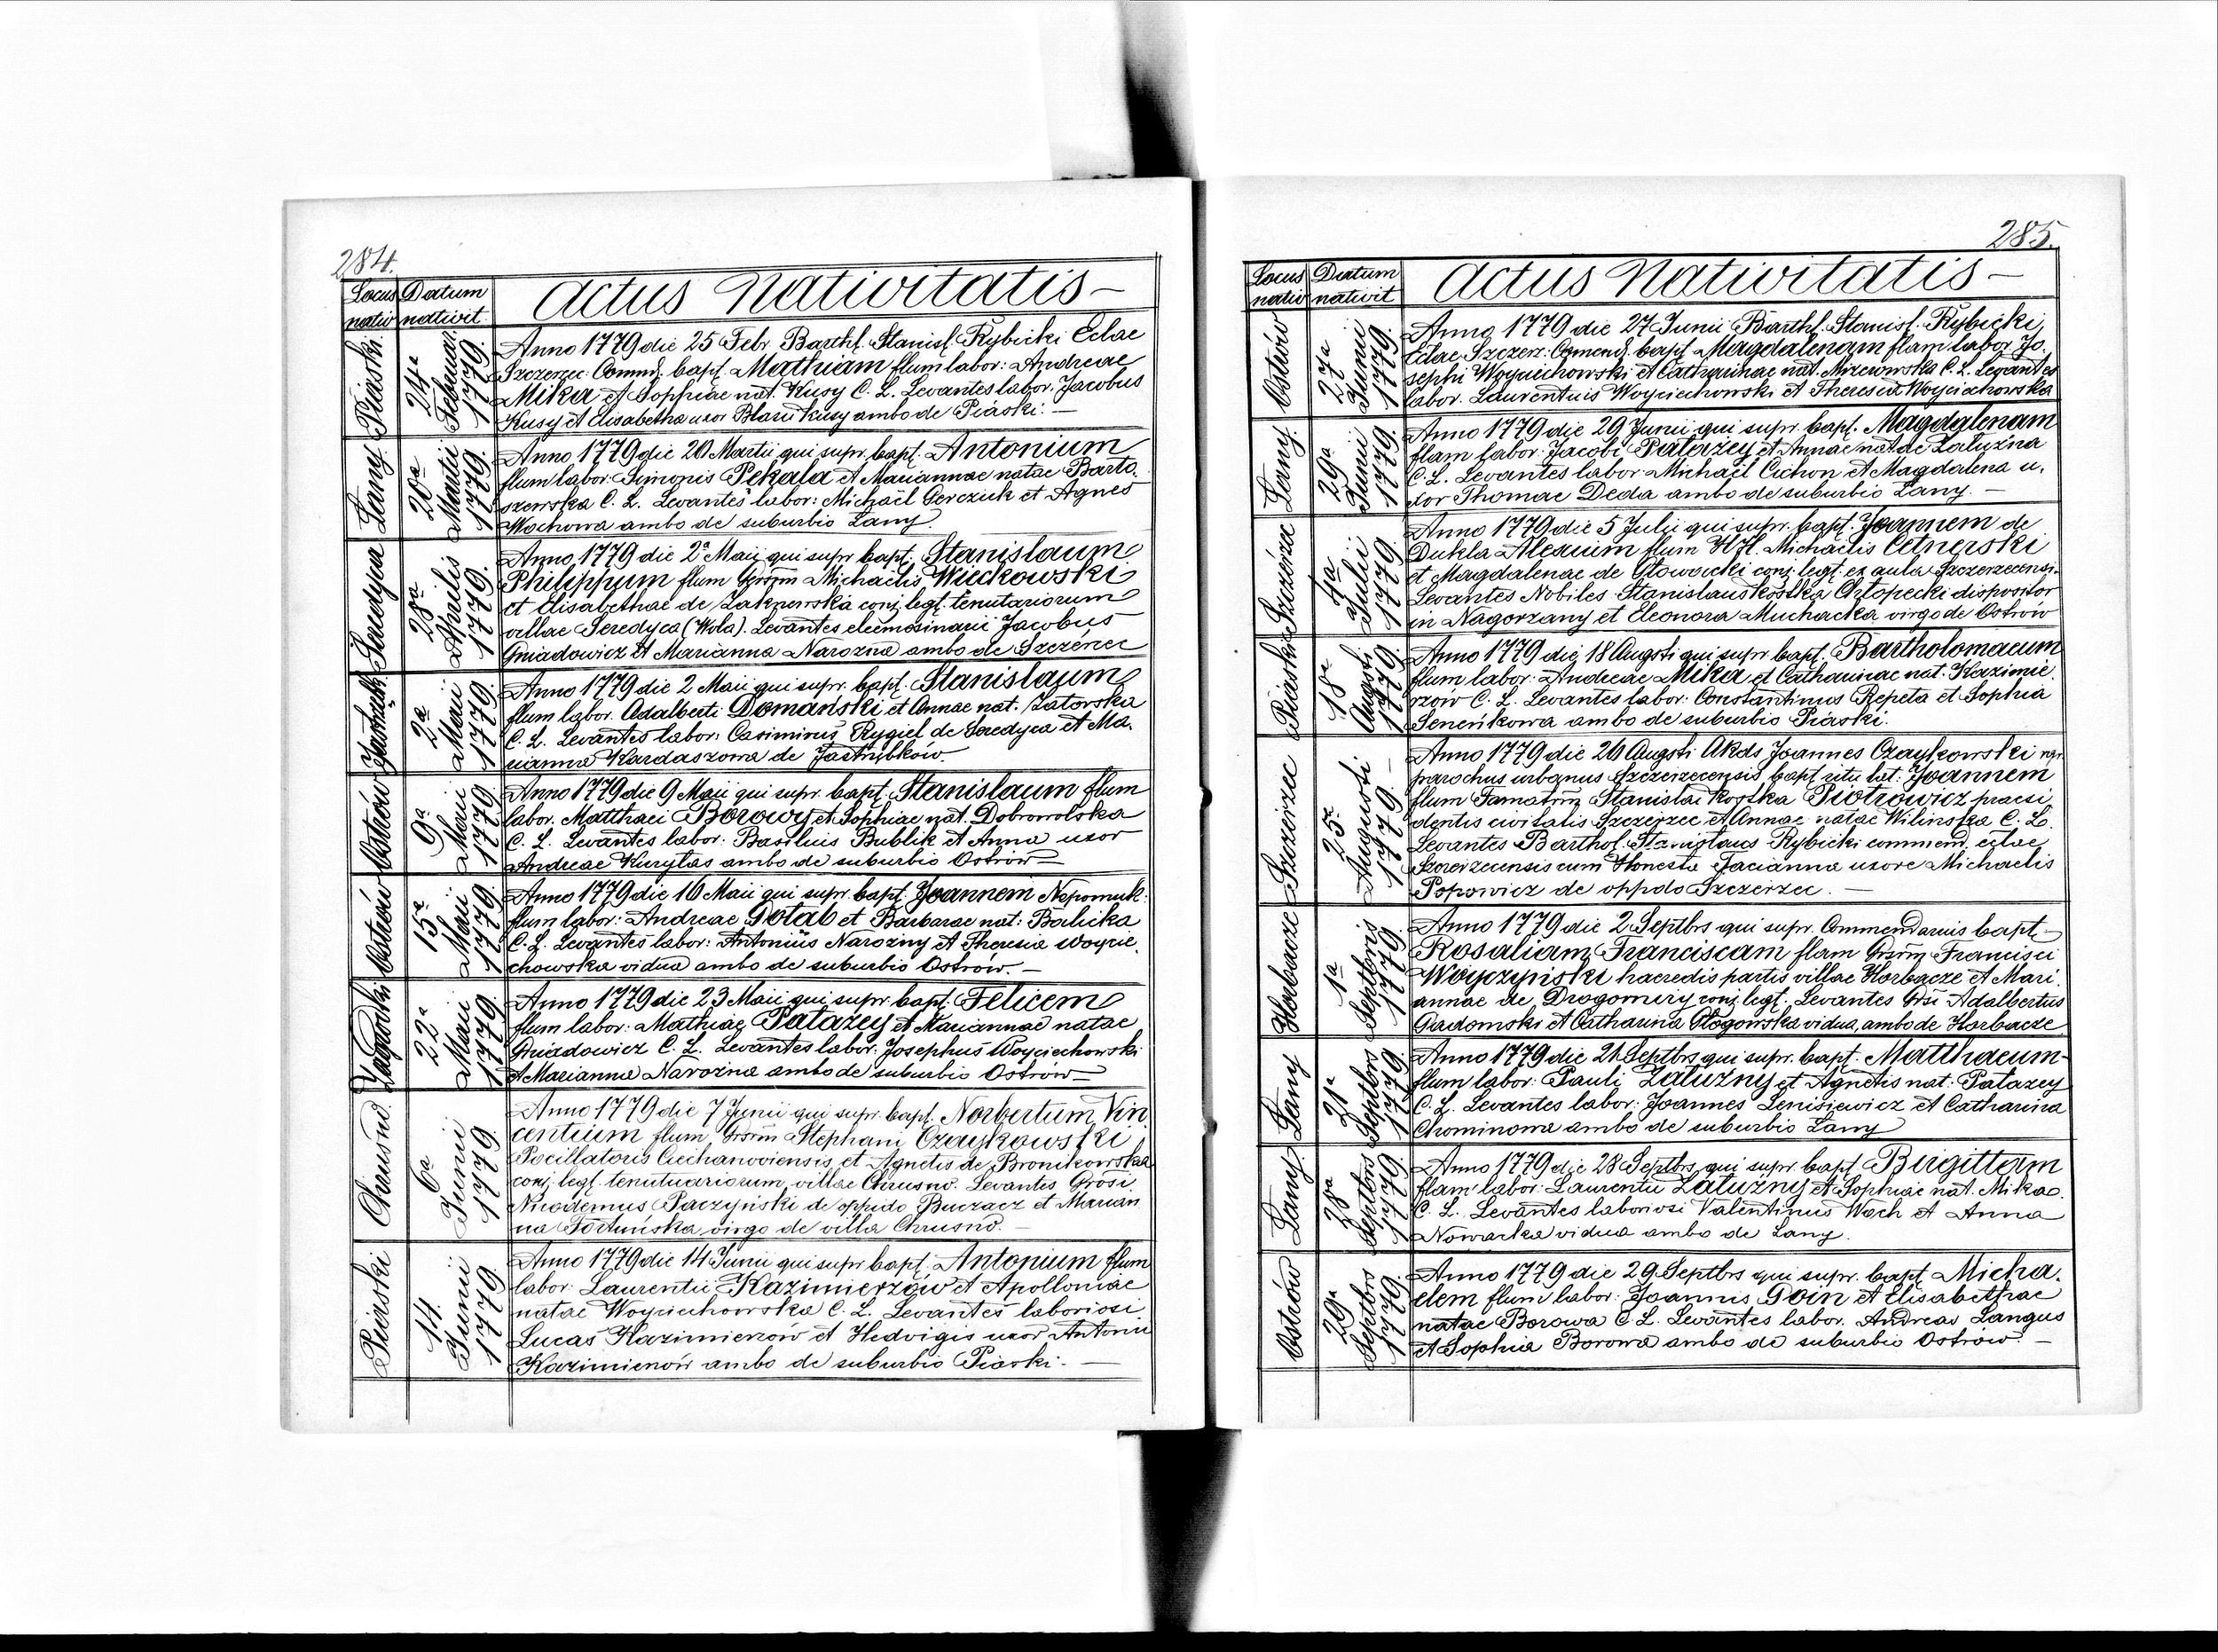 284.
Locus nativ
Datum nativit.
Actus Nativitatis —
Piaski
24a Februar. 1779.
Anno 1779 die 25 Febr. Barthł. Stanisł. Rybicki Eclae
Szczerzec: Commd. bapt. Mathiam flum labor: Andreae
Mika et Sophiae nat. Kusy C. L. Levantes labor. Jacobus
Kusy et Elisabetha uxor Blasii Kusy ambo de Piaski. —
Łany
20a Martii 1779.
Anno 1779 die 20 Martii qui supr. bapt. Antonium
flum labor: Simonis Pekala et Mariannae natae Barto.
szewska C. L. Levantes labor: Michaël Gerczuk et Agnes
Wochowa ambo de suburbio Łany.
Seredyca
28a Aprilis 1779.
Anno 1779 die 2a Maii qui supr bapt. Stanislaum
Philippum flum Grsm Michaëlis Wieckowski
et Elisabethae de Zakrzewska conj. legt. tenutariorum
villae Seredyca (Wola). Levantes eleemosinarii Jacobus
Gniadowicz et Marianna Narozna ambo de Szczérzec
2a Maii 1779.
Anno 1779 die 2 Maii qui supr. bapt. Stanislaum
flum labor. Adalberti Domański et Annae nat. Zatorska
C. L. Levantes labor: Casimirus Rygiel de Seredyca et Ma.
rianna Kardaszowa de Jastrzębków.
Ostrów
9a Maii 1779
Anno 1779 die 9 Maii qui supr. bapt. Stanislaum flum
labor. Matthaei Borowy et Sophiae nat. Dobrowolska
C. L. Levantes labor: Basilius Bublik et Anna uxor
Andreae Kurylas ambo de suburbio Ostrów —
Ostrów
15a Maii 1779
Anno 1779 die 16 Maii qui supr. bapt. Joannem Nepomuk:
flum labor: Andreae Gołab et Barbarae nat: Balicka
C. L. Levantes labor: Antoniüs Narozny et Theresia Woycie.
chowska vidua ambo de suburbio Ostrów. —
Zagrodki
22a Maii 1779
Anno 1779 die 23 Maii qui supr. bapt. Felicem
flum labor: Mathiae Patazey et Mariannae natae
Gniadowicz C. L. Levantes labor: Josephus Woyciechowski
et Marianna Narozna ambo de suburbio Ostrów —
Chrusno
6a Junii 1779
Anno 1779 die 7 Junii qui supr. bapt. Norbertum Vin
centium flum Grsm Stephani Czaykowski
Pocillatoris Ciechanoviensis et Agnetis de Bronikowska
conj. legt. tenutuariorum villae Chrusno. Levantes Grosi
Nicodemus Paczyński de oppido Buczacz et Marian
na Fortuńska virgo de villa Chrusno. —
Piaski
14. Junii 1779.
Anno 1779 die 14 Junii qui supr bapt. Antonium flum
labor: Laurentii Kazimierzów et Apolloniae
natae Woyciechowska C. L. Levantes laboriosi
Lucas Kazimierzów et Hedvigis uxor Antonii
Kazimierzów ambo de suburbio Piaski. —
285.
Locus nativ
Datum nativit
Actus Nativitatis —
Ostrów
27a Junii 1779.
Anno 1779 die 27 Junii Barthł. Stanisł. Rybicki,
Eclae Szczerz: Comend. bapt Magdalenam flam labor. Jo.
sephi Woyciechowski et Catharinae nat. Mrzewska C. L. Levantes
labor. Laurentius Woyciechowski et Theresia Woyciechowska
Łany
29a Junii 1779.
Anno 1779 die 29 Junii qui supr. bapt. Magdalenam
flam labor: Jacobi Patazey et Annae natae Załuzna
C. L. Levantes labor Michaël Cichon et Magdalena u.
xor Thomae Deda ambo de suburbio Łany. —
Szczérzec
4a Julii 1779
Anno 1779 die 5 Julii qui supr. bapt. Joannem de
Dukla Alexium flum Michaëlis Cetnerski
et Magdalenae de Głowacki conj. legt. ex aula Szczerzecensi.
Levantes Nobiles Stanislaus Kostka Chłopecki dispositor
in Nagorzany et Eleonora Muchacka virgo de Ostrów
Piaski
18a Augsti 1779
Anno 1779 die 18 Augsti qui supr. bapt. Bartholomaeum
flum labor: Andreae Mika et Catharinae nat. Kazimie.
rzów C. L. Levantes labor: Constantinus Repeta et Sophia
Seneńkowa ambo de suburbio Piaski.
Szczerzec
25a Augusti 1779 —
Anno 1779 die 26 Augsti Joannes Czaykowski
parochus urbanus Szczerzecensis bapt. ritu lat: Joannem
flum Famatsm Stanislai Kostka Piotrowicz praesi
dentis civitatis Szczerzec et Annae natae Wilinska C. L.
Levantes Barthol. Stanislaus Rybicki commend. eclae
Szczerzecensis cum Honesta Facianna uxore Michaëlis
Popowicz de oppdo Szczerzec. —
Horbacze
1a Septbris 1779
Anno 1779 die 2 Septbrs qui supr. Commendarius bapt —
Rosaliam Franciscam flam Grsm Francisci
Woyczyński haeredis partis villae Horbacze et Mari.
annae de Drogomiry conj. legt. Levantes Grsi Adalbertus
Gadomski et Catharina Głogowska vidua, ambo de Horbacze
Łany
21a Septbrs 1779.
Anno 1779 die 21 Septbrs qui supr. bapt. Matthaeum —
flum labor: Pauli Załuzny et Agnetis nat: Patazey
C. L. Levantes labor: Joannes Lenisiewicz et Catharina
Chominowa ambo de suburbio Łany
Łany
28a Septbris 1779
Anno 1779 die 28 Septbrs qui supr. bapt. Birgittam
flam labor: Laurentii Załuzny et Sophiae nat. Mika.
C. L. Levantes laboriosi Valentinus Woch et Anna
Nowacka vidua ambo de Łany.
Ostrów
29a Septbrs 1779.
Anno 1779 die 29 Septbrs qui supr. bapt. Micha.
elem flum labor: Joannis Goin et Elisabethae
natae Borowa C. L. Levantes labor. Andreas Langus
et Sophia Borowa ambo de suburbio Ostrów. —